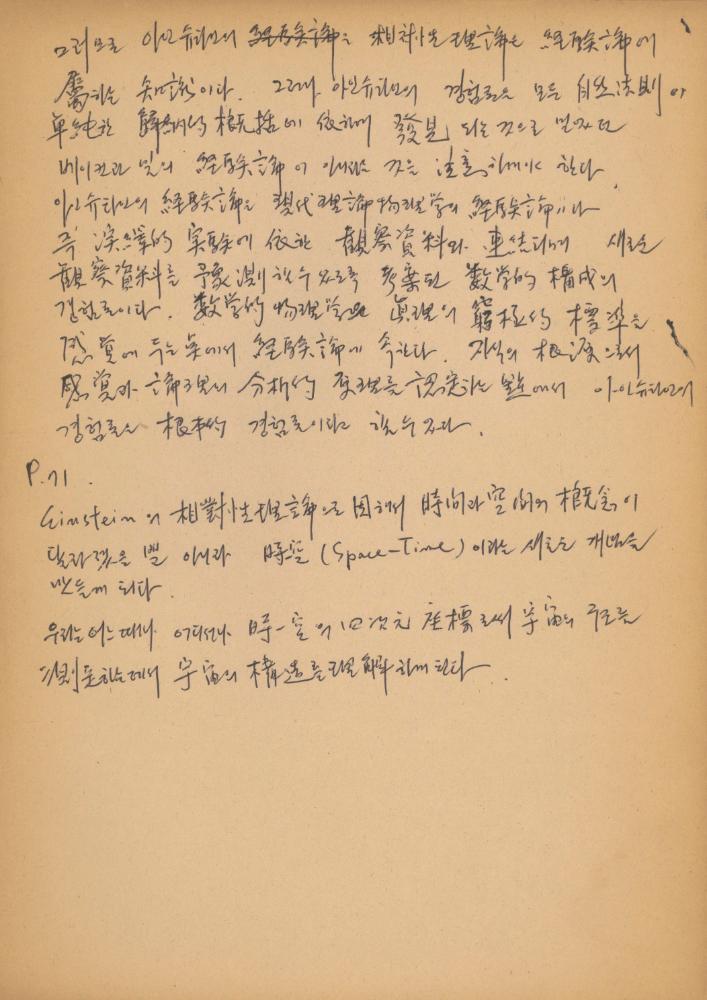 그러므로 아인슈타인의 経験論은 相対性理論은 経験論에
屬하는 知識이다. 그러나 아인슈타인의 경험론은 모든 自然法則이
単純한 歸納的 槪括에 依하여 發見되는 것으로 믿었던
베이컨과 밀의 経験論이 아니라는 것을 注意하여야 한다.
아인슈타인의 経験論은 現代理論物理学의 経験論이다
즉 演繹的 実験에 依한 観察資料와 連結되어 새로운
観察資料를 予測할수 있도록 考案된 数学的 構成의
경험론이다. 数学的 物理学은 眞理의 窮極的 標準을
感覚에 두는 点에서 経験論에 속한다. 지식의 根源으로서
感覚과 論理의 分析的 原理를 認定하는 點에서 아인슈타인의
경험론은 根本的 경험론이라 할수 있다.
P.71.
Einstein의 相對性理論으로 因해서 時間과 空間의 槪念이
달라졌을 뿐 아니라 時空 (Space-Time) 이라는 새로운 개념을
만들게 되다.
우리는 어느때나 어디서나 時-空의 四次元 座標로써 宇宙의 구조를
測定하는데서 宇宙의 構造를 理解하게 된다.